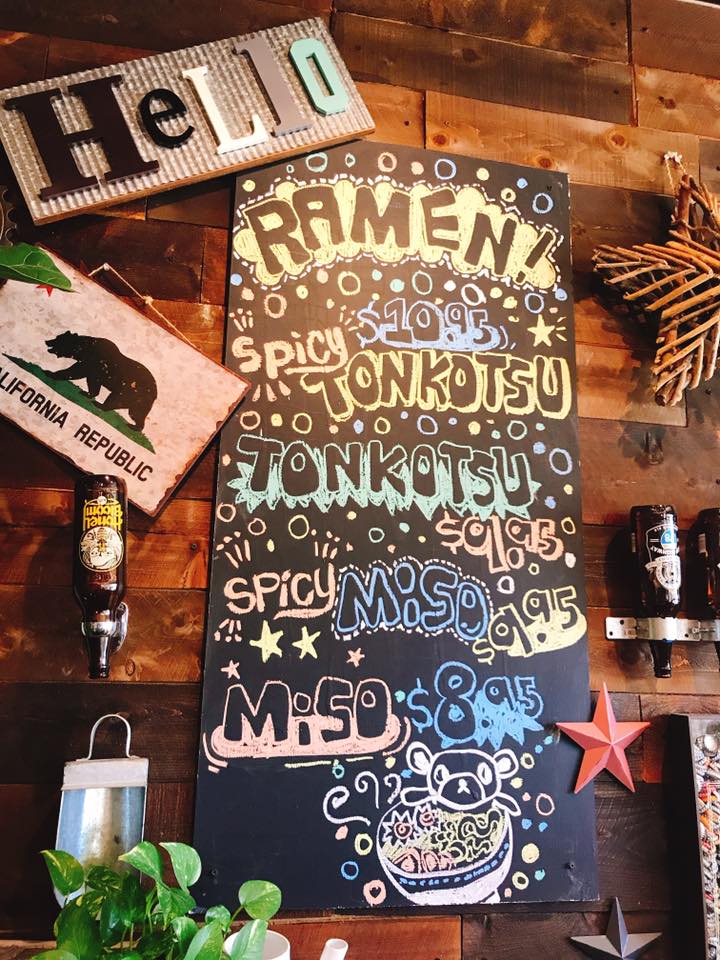 HeLLO
RAMEN!
$10.95
SPiCY TONKOTSU
TONKOTSU
$9.95
SPiCY MiSO $9.95
MiSO $8.95
CALIFORNIA REPUBLIC